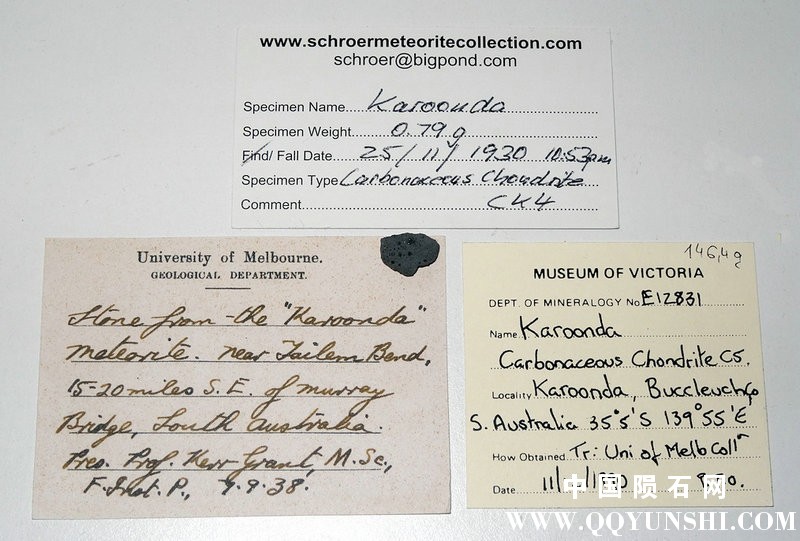 www.schroermeteoritecollection.com
schroer@bigpond.com
Specimen Name.....Karoonda
Specimen Weight.....0.79g
Find/ Fall Date.....25/11/1930 10:53pm
Specimen Type Carbonaceous Chondrite
Comment.....CK4
University of Melbourne.
GEOLOGICAL DEPARTMENT.
Stone from the "Karoonda"
meteorite. near Tailem Bend,
15-20 miles S.E. of Murray
Bridge, South Australia.
Pres. Prof. Kerr Grant, M.Sc.,
F. Inst. P., 7.9.38.
146,4g
MUSEUM OF VICTORIA
DEPT. OF MINERALOGY No E12831
Name Karoonda
Carbonaceous Chondrite C5.
Locality Karoonda, Buccleuch Co
S. Australia 35°5'S 139°55'E
How Obtained Tr: Uni of Melb Colln
Date 11/
中国陨石网
WWW.QQYUNSHI.COM